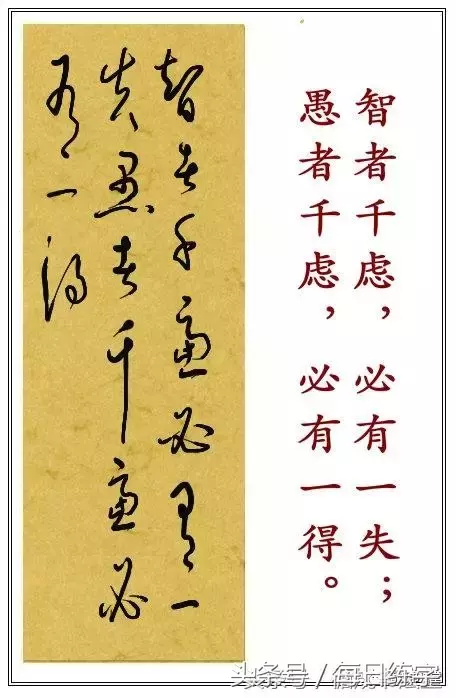 智者千虑，必有一失；
愚者千虑，必有一得。
智者千慮必有一
失愚者千慮必
有一得
头条号 / 每日练字